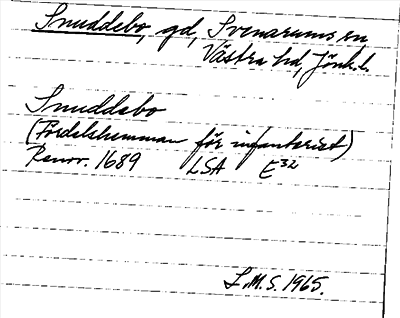 Snuddebo, gd, Svenarums sn
Västra hd, Jönk.l.
Snuddebo
(Fördelshemman för infanterist)
Renov. 1689 LSA E32
L.M.S. 1965.